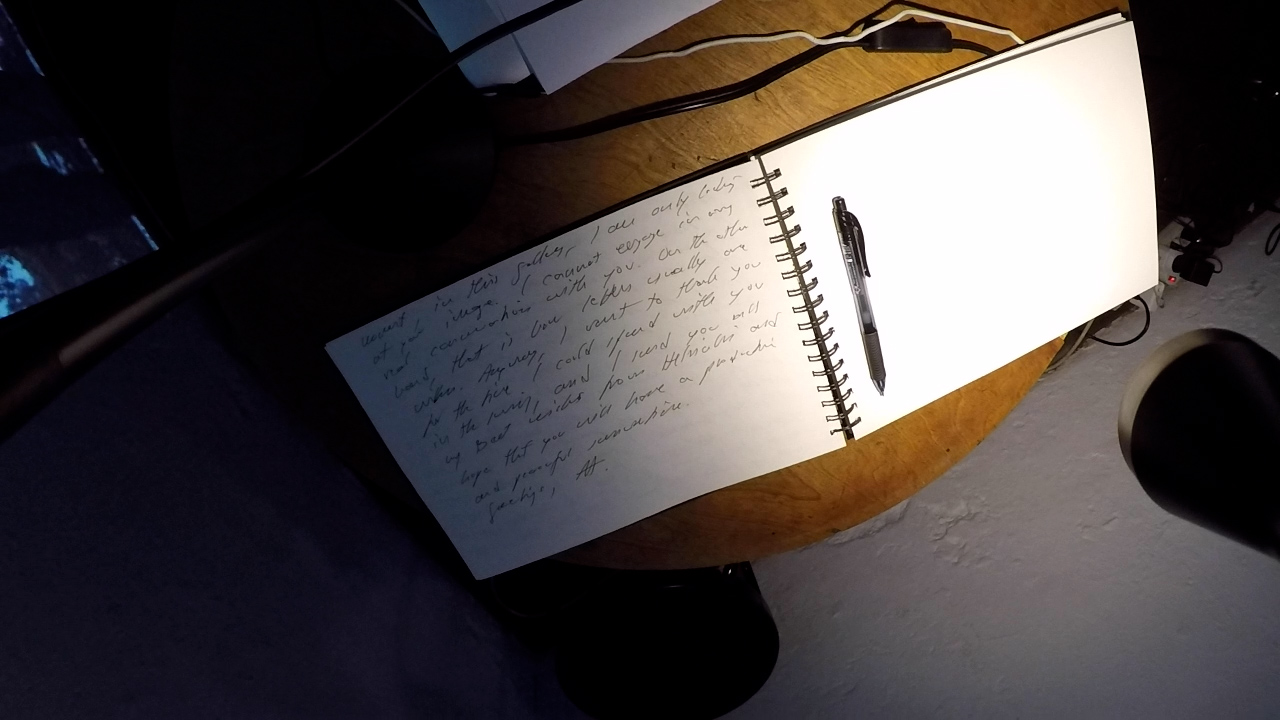 in this gallery, I am only looking
at your image. I cannot engage in any
real conversation with you. On the other
hand, that is how letters usually are
written. Anyway, I want to thank you
for the time I could spend with you
in the and I send you all
my Best wishes from Helsinki and
hope that you will have a productive
and peaceful
greetings, AA.